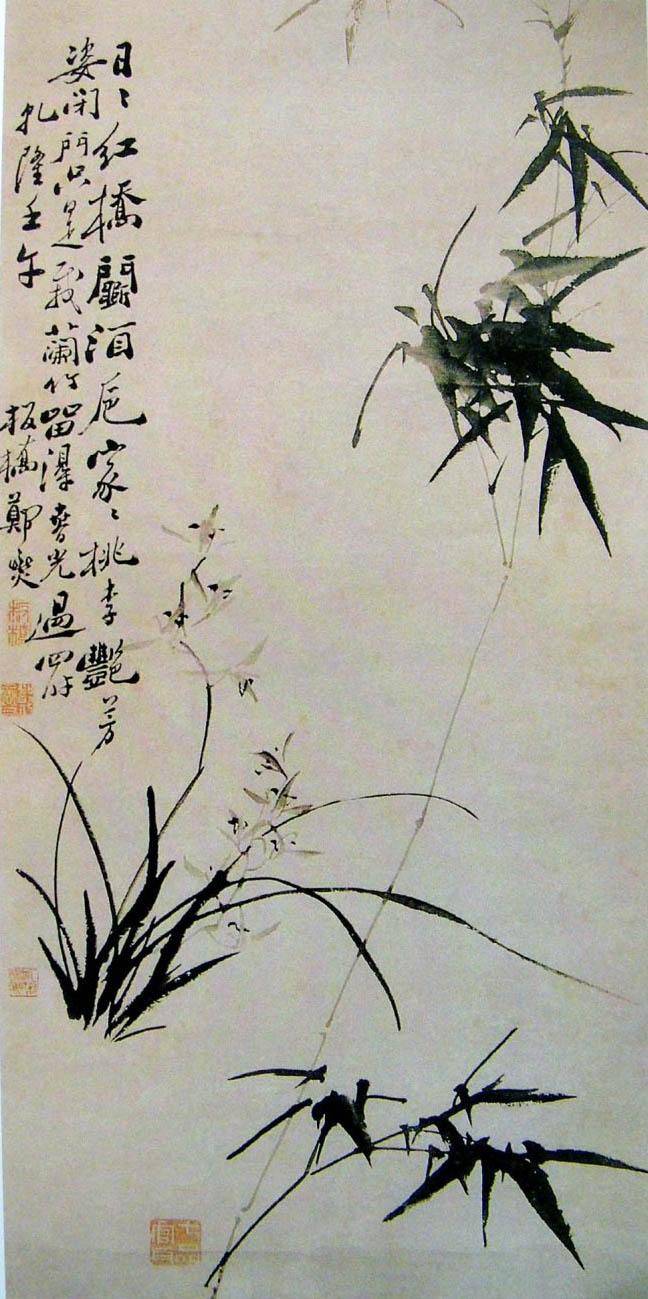 日〻紅橋鬭酒卮家〻桃李艷芳
姿閉門只是栽蘭竹留得春光過四時
乾隆壬午 板橋鄭燮